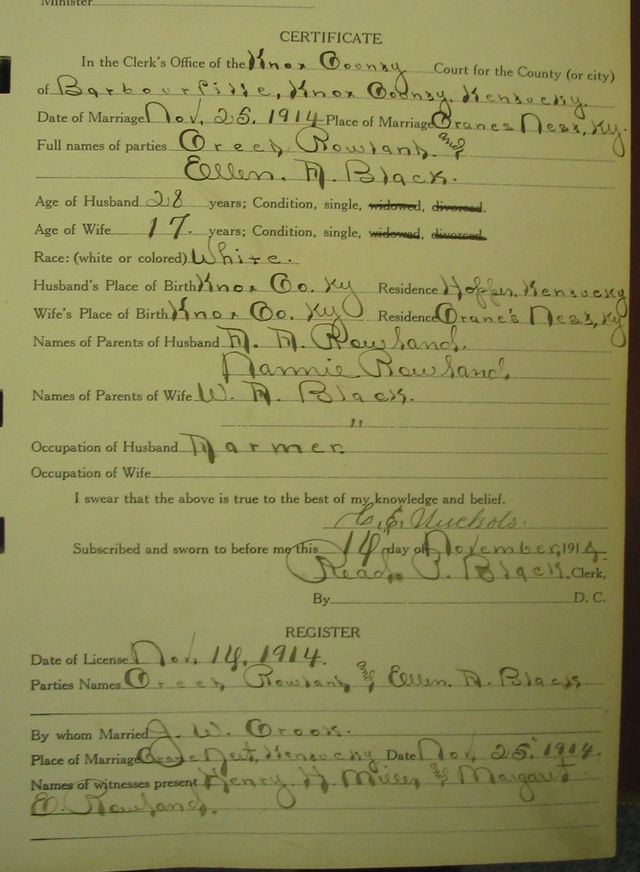 Minister
CERTIFICATE
In the Clerk's Office of the Knox County Court for the County (or city)
of Barbourville, Knox County, Kentucky.
Date of Marriage Nov. 25, 1914 Place of Marriage Cranes Nest, Ky.
Full names of parties Creed Rowland. and
Ellen. A. Black.
Age of Husband 28 years; Condition, single, widowed, divorced.
Age of Wife 17. years; Condition, single, widowed, divorced.
Race: (white or colored) White.
Husband's Place of Birth Knox Co. Ky Residence Kentucky
Wife's Place of Birth Knox Co. Ky Residence Crane's Nest, Ky
Names of Parents of Husband Rowland.
Nannie Rowland,
Names of Parents of Wife W. Black.
"
Occupation of Husband Farmer.
Occupation of Wife
I swear that the above is true to the best of my knowledge and belief.
C. E. Nuckols.
Subscribed and sworn to before me this 14 day of November, 1914
Read P. Black. Clerk,
By D. C.
REGISTER
Date of License Nov, 14, 1914.
Parties Names Creed Rowland and Ellen. A. Black
By whom Married J. W. Crook.
Place of Marriage Crane Nest, Kentucky Date Nov, 25, 1914.
Names of witnesses present Henry H Miller and Margaret
E. Rowland.